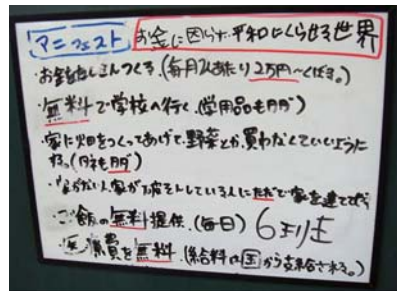 マニフェスト お金に困らず平和にくらせる世界
・お金をたくさんつくる。(毎月1人あたり2万円〜くばる。)
・無料で学校へ行く。(学用品もタダ)
・家に畑をつくってあげて、野菜とか、買わなくていいように
する。(タネもタダ)
家が いない人にただで家を建てて
・ご飯の無料提供。(毎日) 6王狂
・医療費を無料。(給料は国から支給される。)